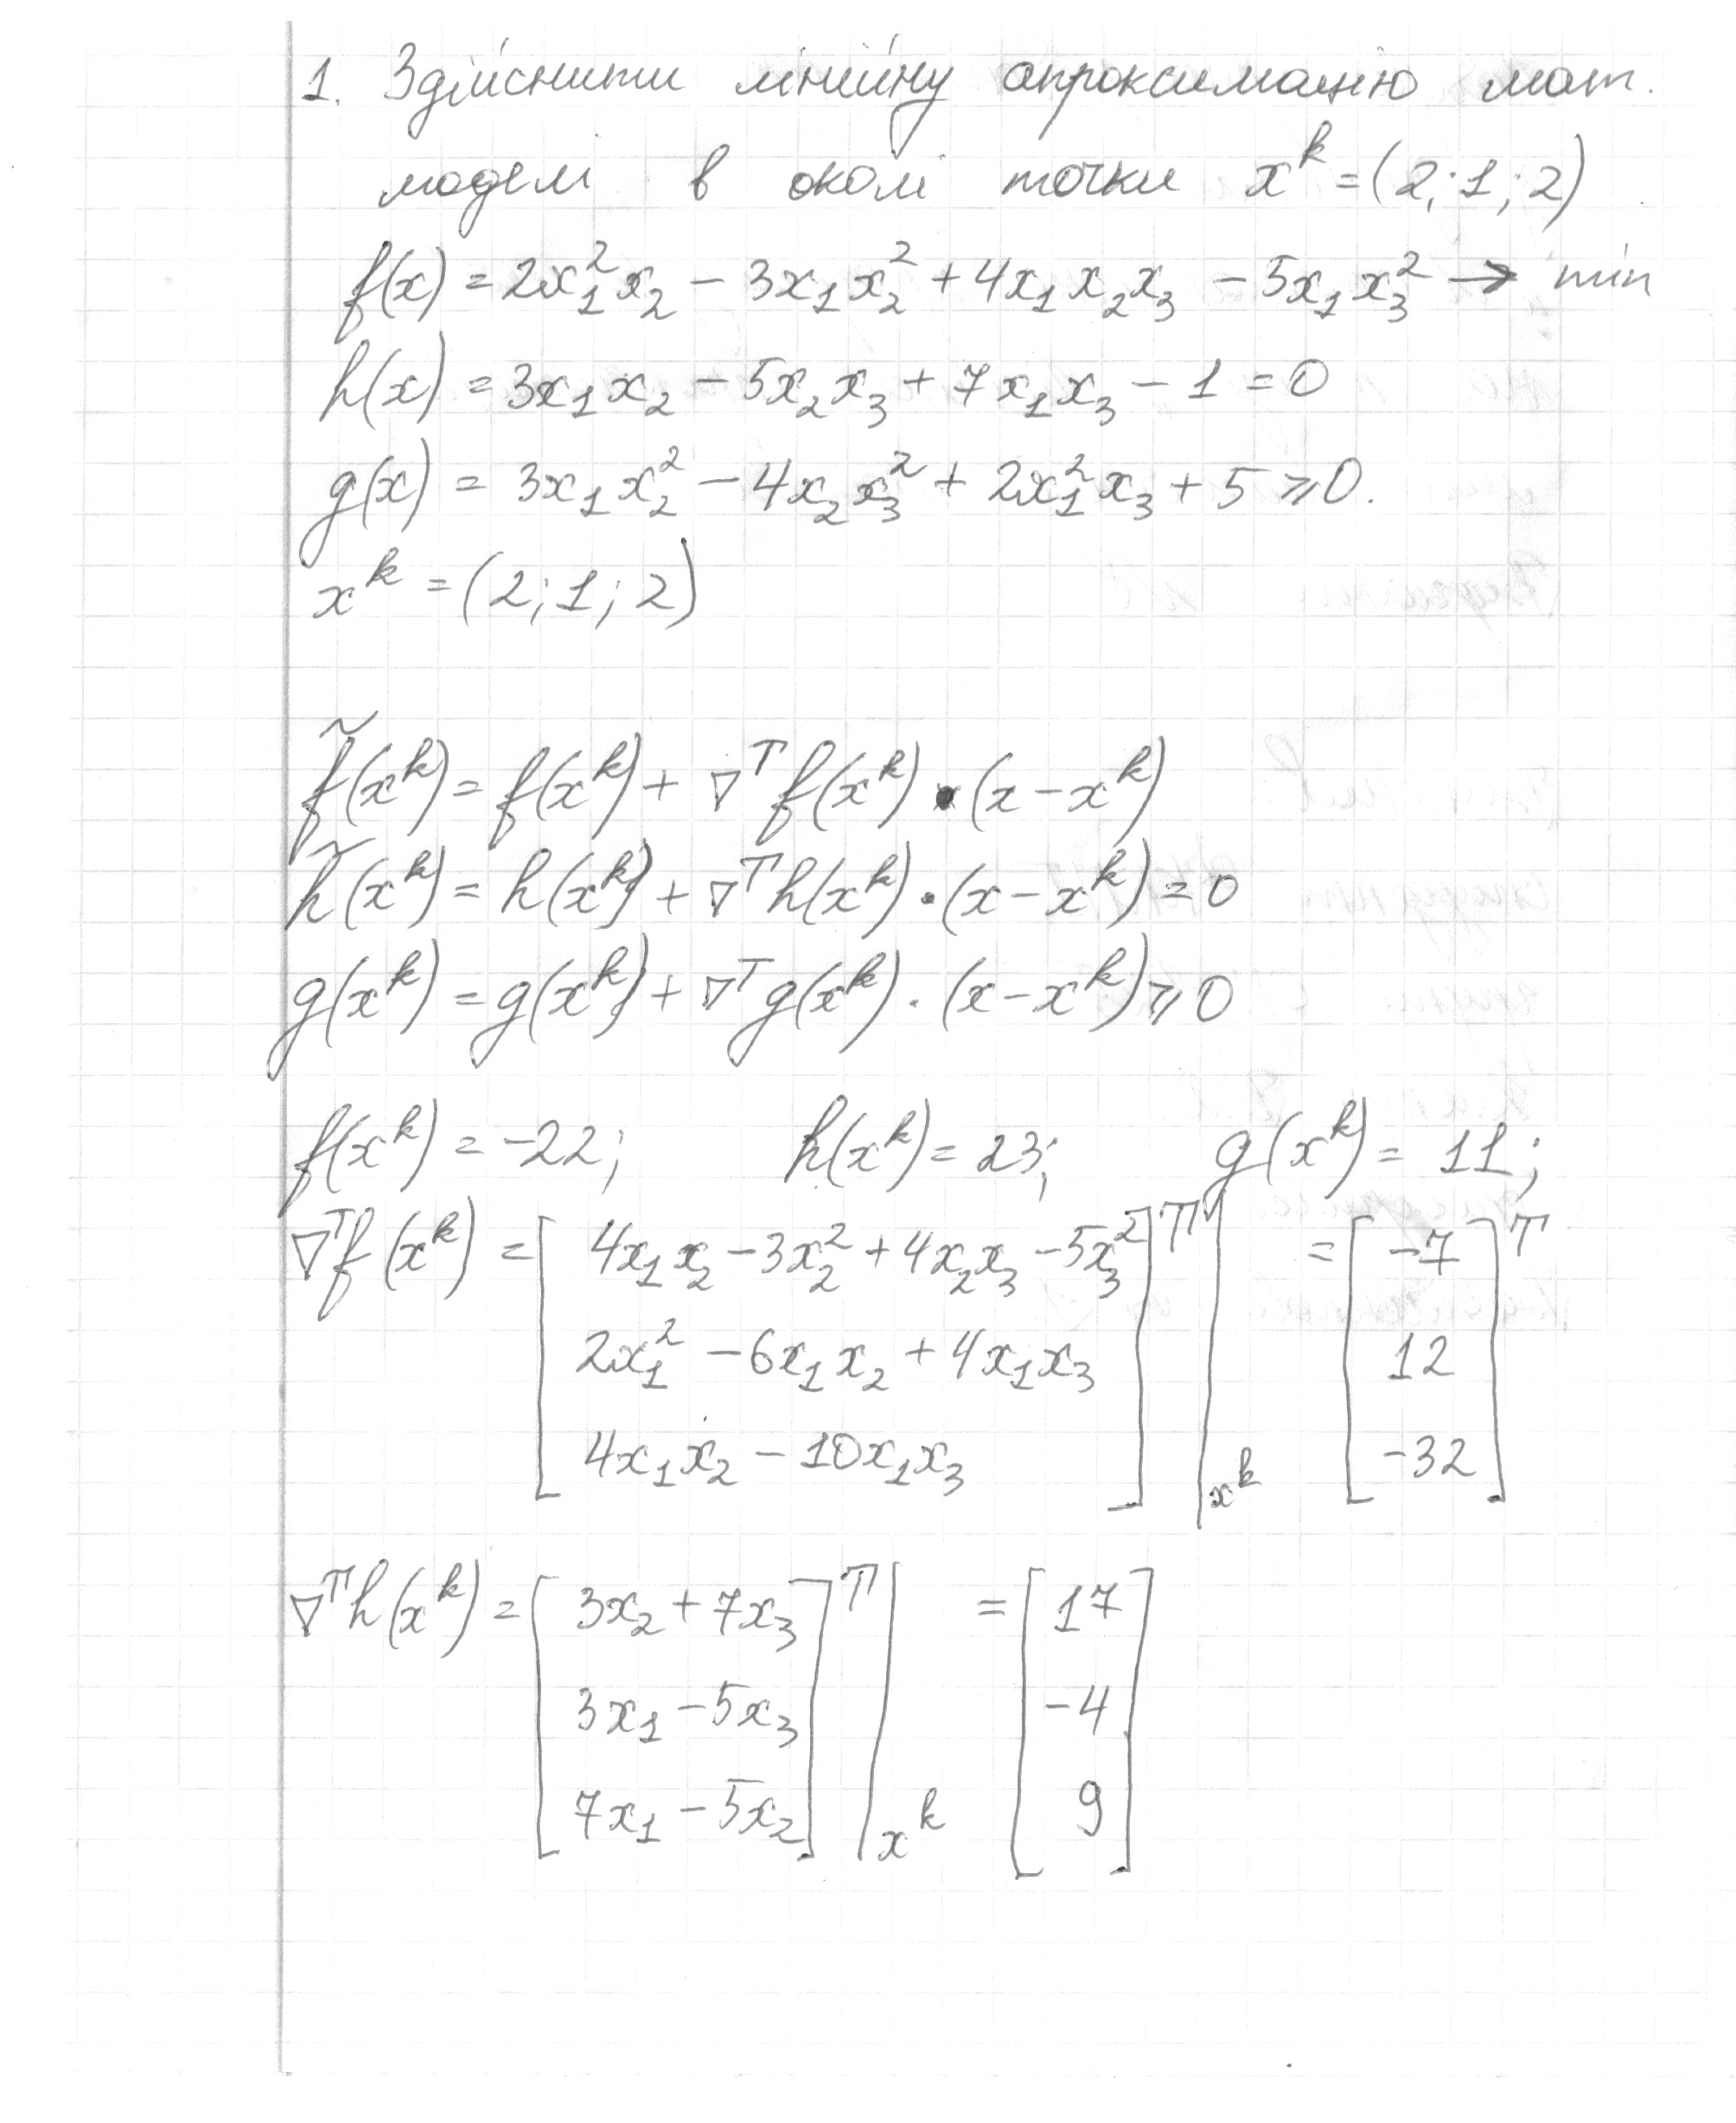 1. Здійснити лінійну апроксимацію мат.
моделі в околі точки x^k = (2; 1; 2)
f(x) = 2x₁²x₂ − 3x₁x₂² + 4x₁x₂x₃ − 5x₁x₃² → min
h(x) = 3x₁x₂ − 5x₂x₃ + 7x₁x₃ − 1 = 0
g(x) = 3x₁x₂² − 4x₂x₃² + 2x₁²x₃ + 5 ⩾ 0.
x^k = (2; 1; 2)
f̃(x^k) = f(x^k) + ∇ᵀf(x^k) · (x − x^k)
h̃(x^k) = h(x^k) + ∇ᵀh(x^k) · (x − x^k) = 0
g(x^k) = g(x^k) + ∇ᵀg(x^k) · (x − x^k) ⩾ 0
f(x^k) = −22; h(x^k) = 23; g(x^k) = 11;
∇ᵀf(x^k) = [4x₁x₂ − 3x₂² + 4x₂x₃ − 5x₃²]ᵀ| = [−7]ᵀ
2x₁² − 6x₁x₂ + 4x₁x₃ 12
4x₁x₂ − 10x₁x₃ x^k −32
∇ᵀh(x^k) = [3x₂ + 7x₃]ᵀ| = [17]
3x₁ − 5x₃ −4
7x₁ − 5x₂ x^k 9